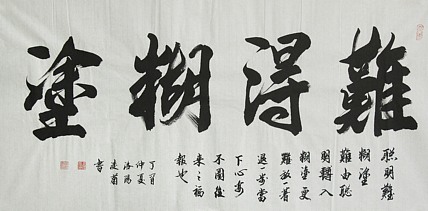 難得糊塗
聪明難
糊塗
難由聪
明轉入
糊塗更
難放一著
退一步當
下心安
不圖後
来之福
報也
丁酉
仲夏
洛陽
書